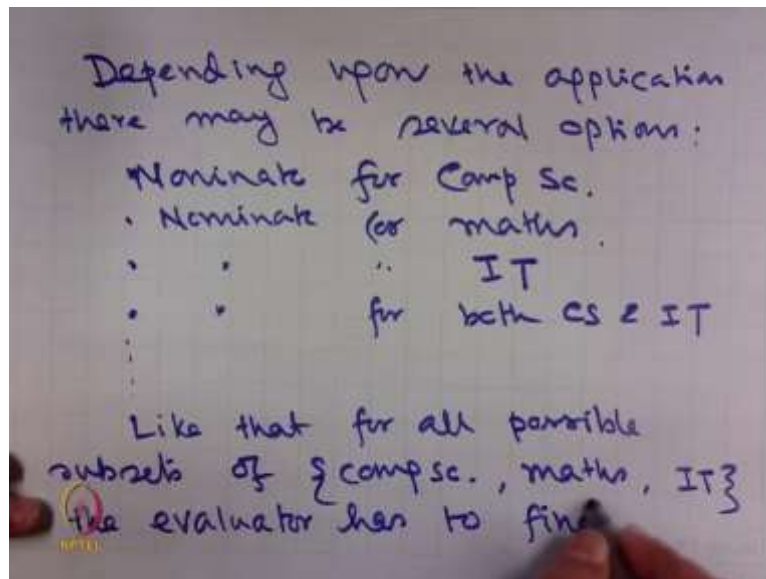 Depending upon the application
there may be several options:
Nominate for Comp Sc.
. Nominate for maths.
. " " IT
. " for both CS & IT
Like that for all possible
subsets of {comp sc., maths, IT}
the evaluator has to find
NPTEL